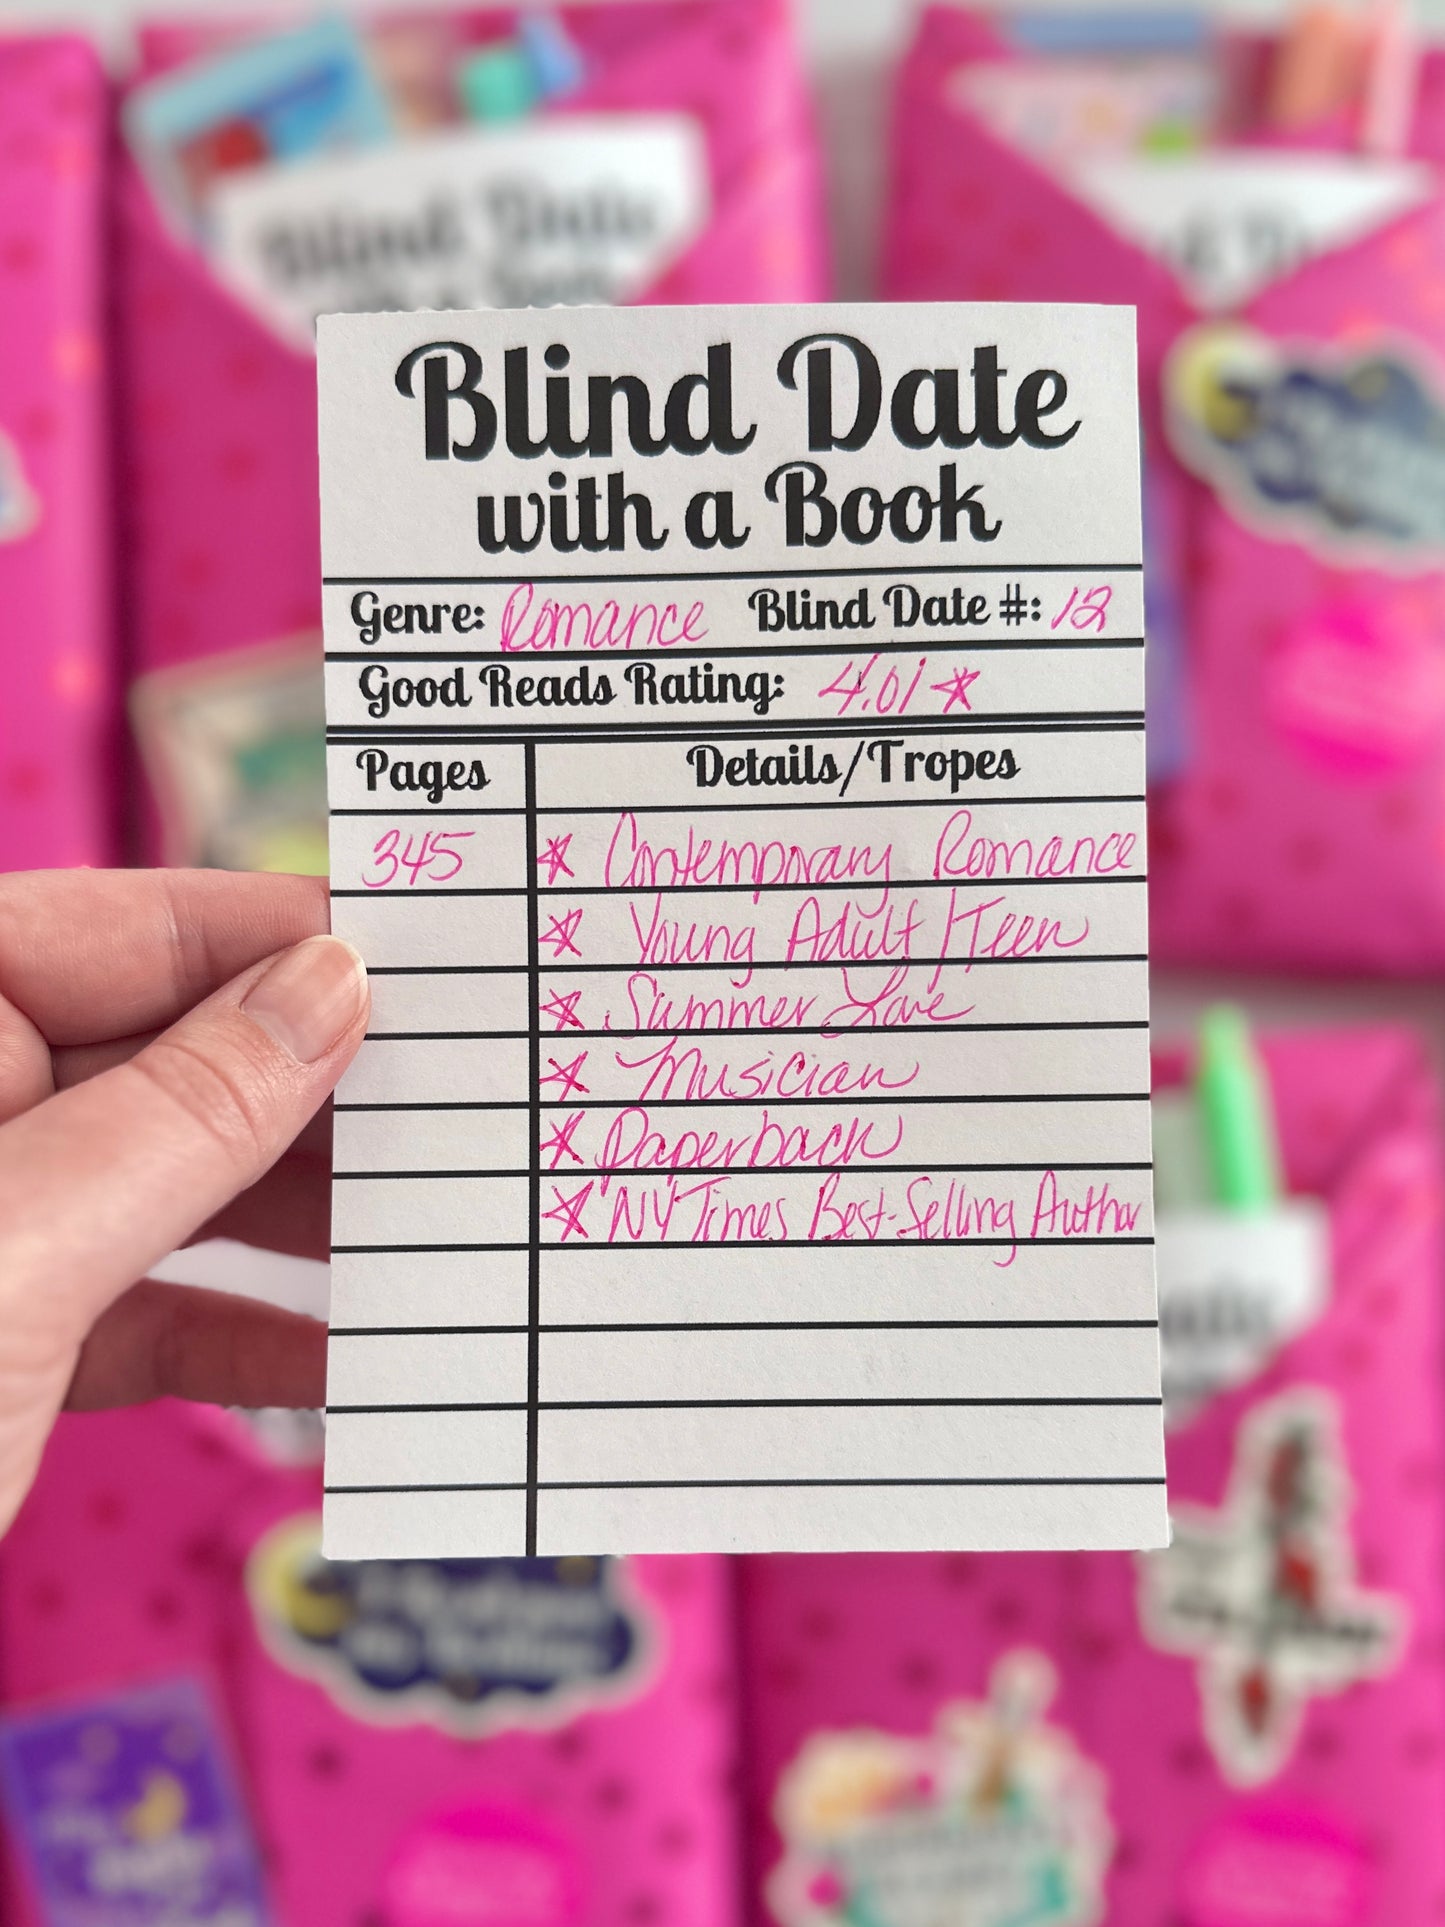 Blind Date
with a
Blind Date
with a Book
Genre: Romance Blind Date #: 12
Good Reads Rating: 4.01 ☆
Pages Details/Tropes
345 ☆ Contemporary Romance
☆ Young Adult/Teen
☆ Summer Love
☆ Musician
☆ Paperback
☆ NY Times Best-Selling Author